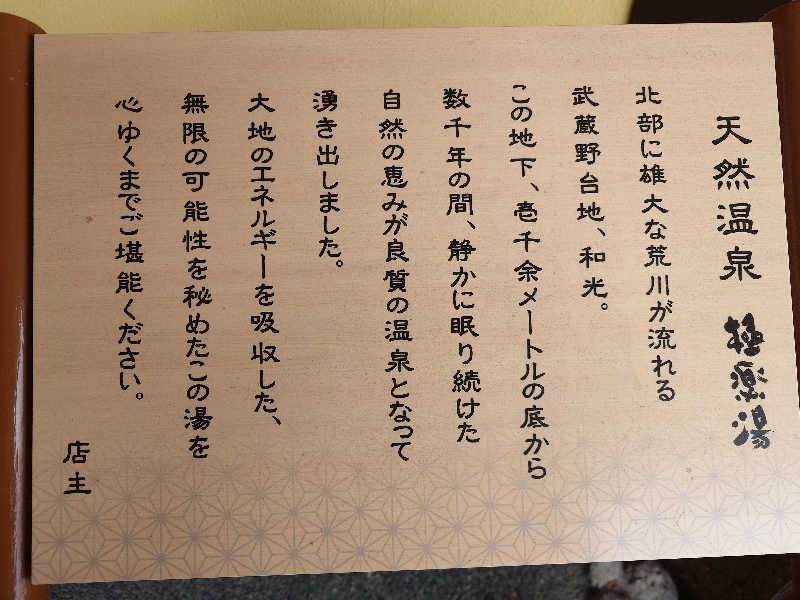 天然温泉 極楽湯
北部に雄大な荒川が流れる
武蔵野台地、和光。
この地下、壱千余メートルの底から
数千年の間、静かに眠り続けた
自然の恵みが良質の温泉となって
湧き出しました。
大地のエネルギーを吸収した、
無限の可能性を秘めたこの湯を
心ゆくまでご堪能ください。
店主